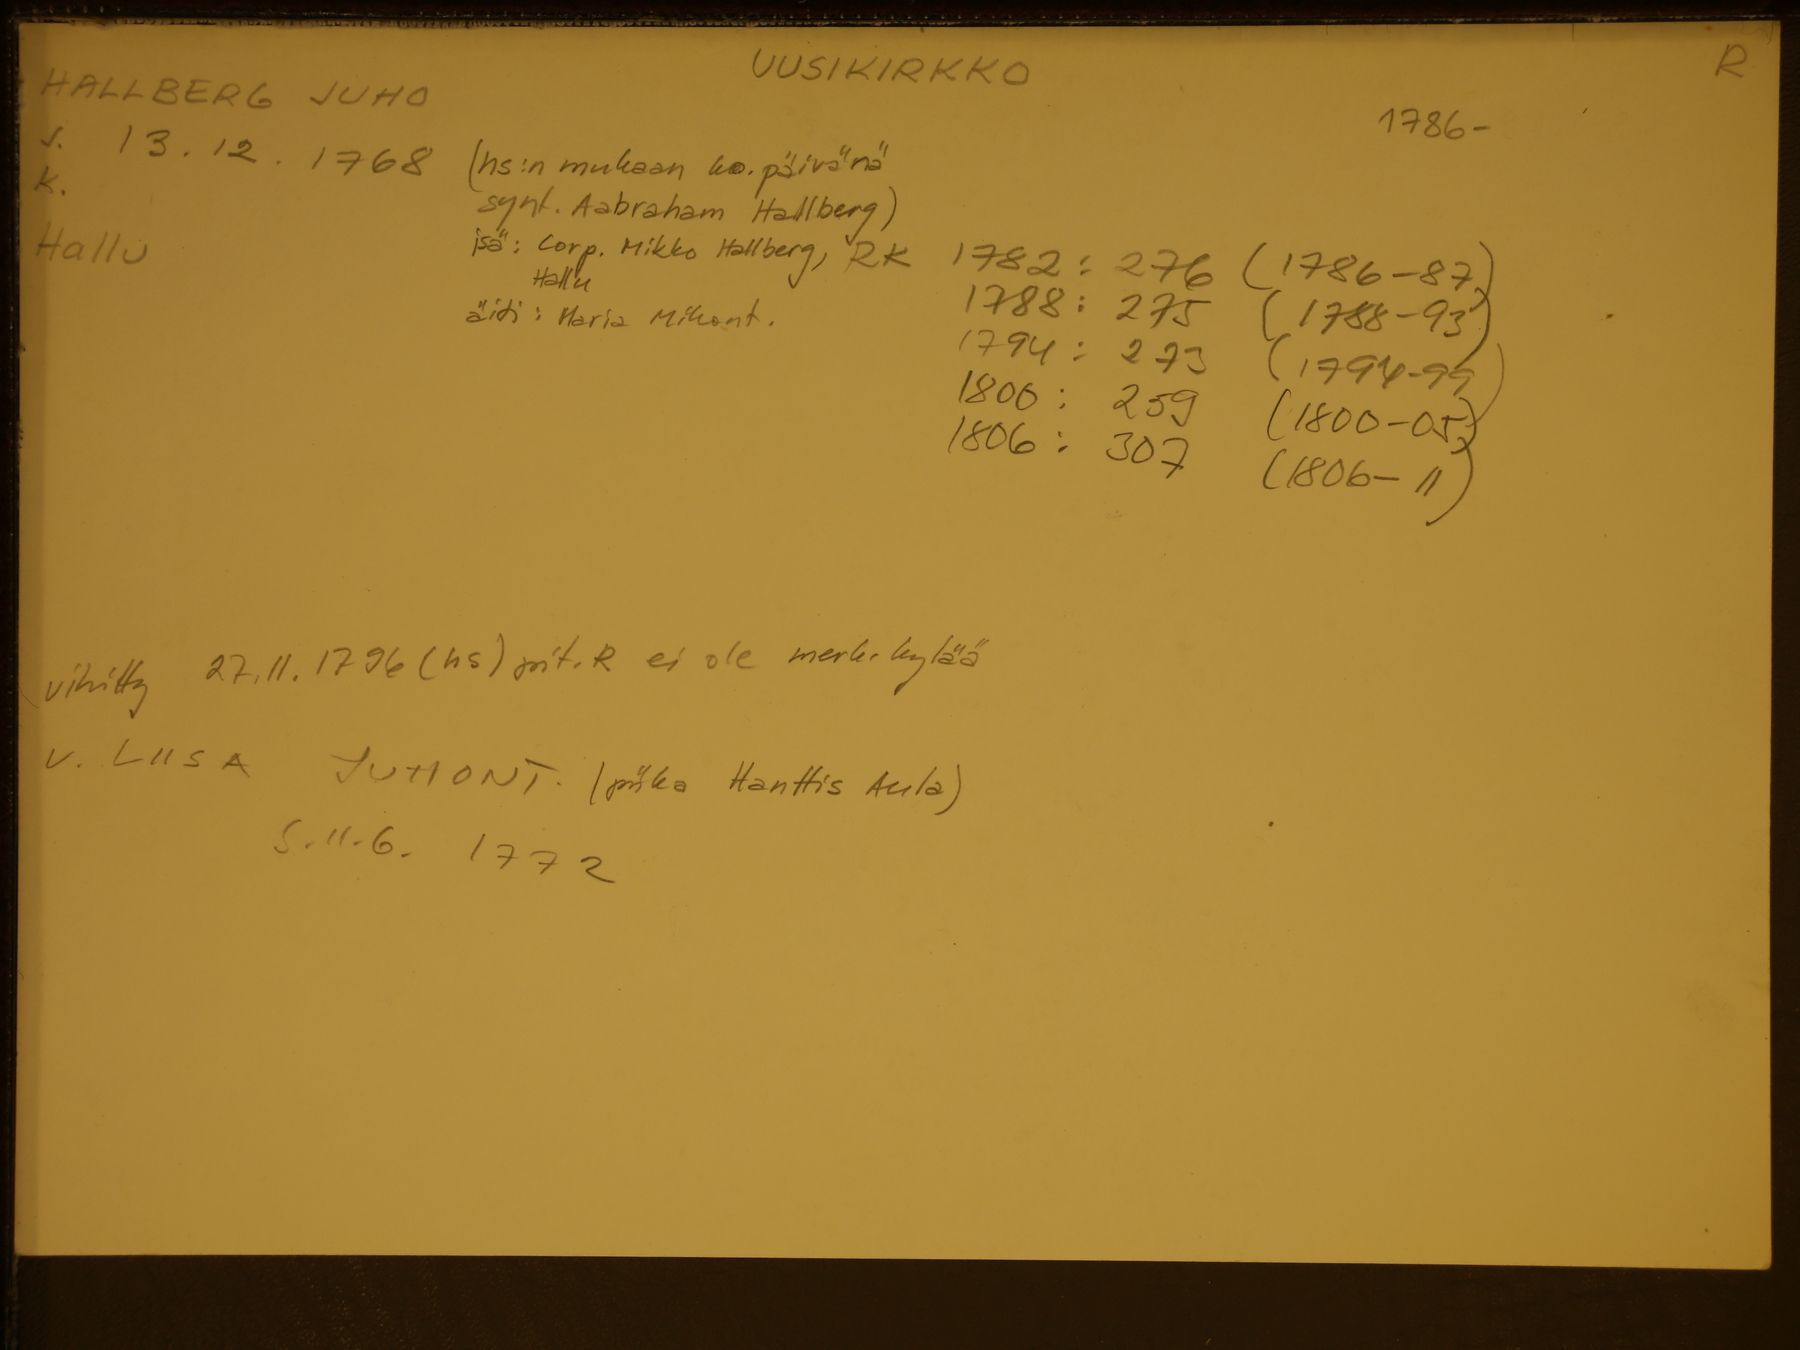 UUSIKIRKKO
R
HALLBERG JUHO
1786-
s. 13.12.1768 (hs:n mukaan ko. päivänä
k.
synt. Aabraham Hallberg)
Hallu
isä: Corp. Mikko Hallberg,
Hallu
äiti: Maria Mikont.
RK 1782: 276 (1786-87)
1788: 275 (1788-93)
1794: 273 (1794-99)
1800: 259 (1800-05)
1806: 307 (1806-11)
vihitty 27.11.1796 (hs) pit. R ei ole merk. kylää
v. LIISA JUHONT. (piika Hanttis Aula)
s.11.6. 1772